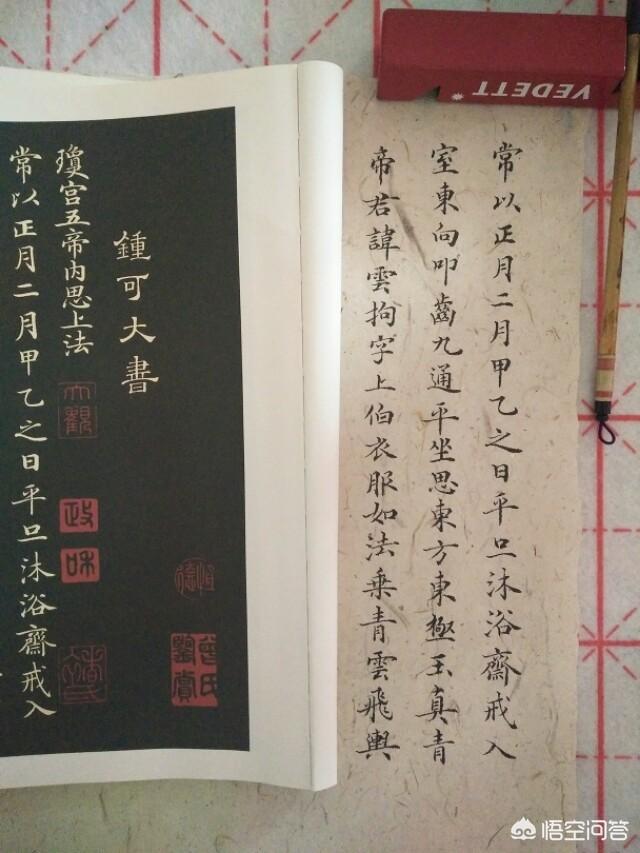 VEDETT
常以正月二月甲乙之日平旦沐浴齋戒入
室東向叩齒九通平坐思東方東極玉真青
帝君諱雲拘字上伯衣服如法乘青雲飛輿
鍾可大書
瓊宮五帝内思上法
大觀
政
和
常以正月二月甲乙之日平旦沐浴齋戒入
悟空问答